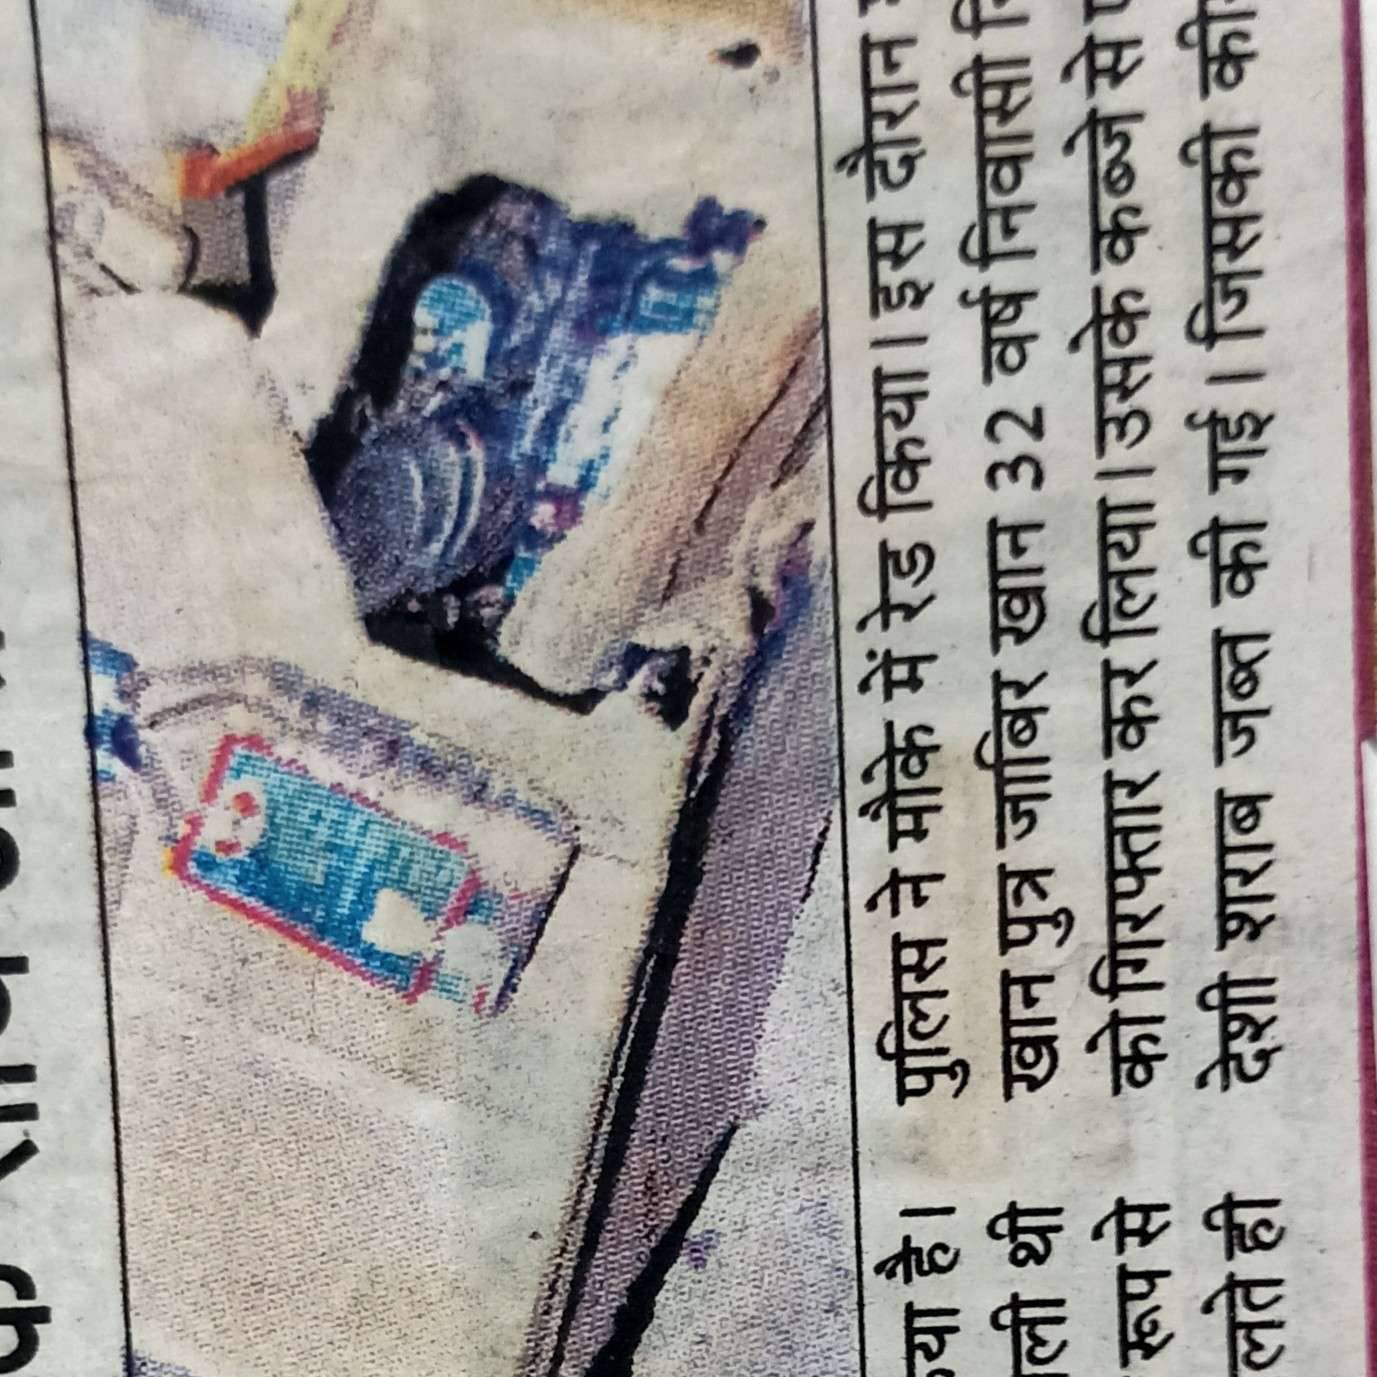 या है।
ली थी
रूप से
लते ही
पुलिस ने मौके में रेड किया। इस दौरान
खान पुत्र जाबिर खान 32 वर्ष निवासी
को गिरफ्तार कर लिया। उसके कब्जे से
देशी शराब जब्त की गई। जिसकी